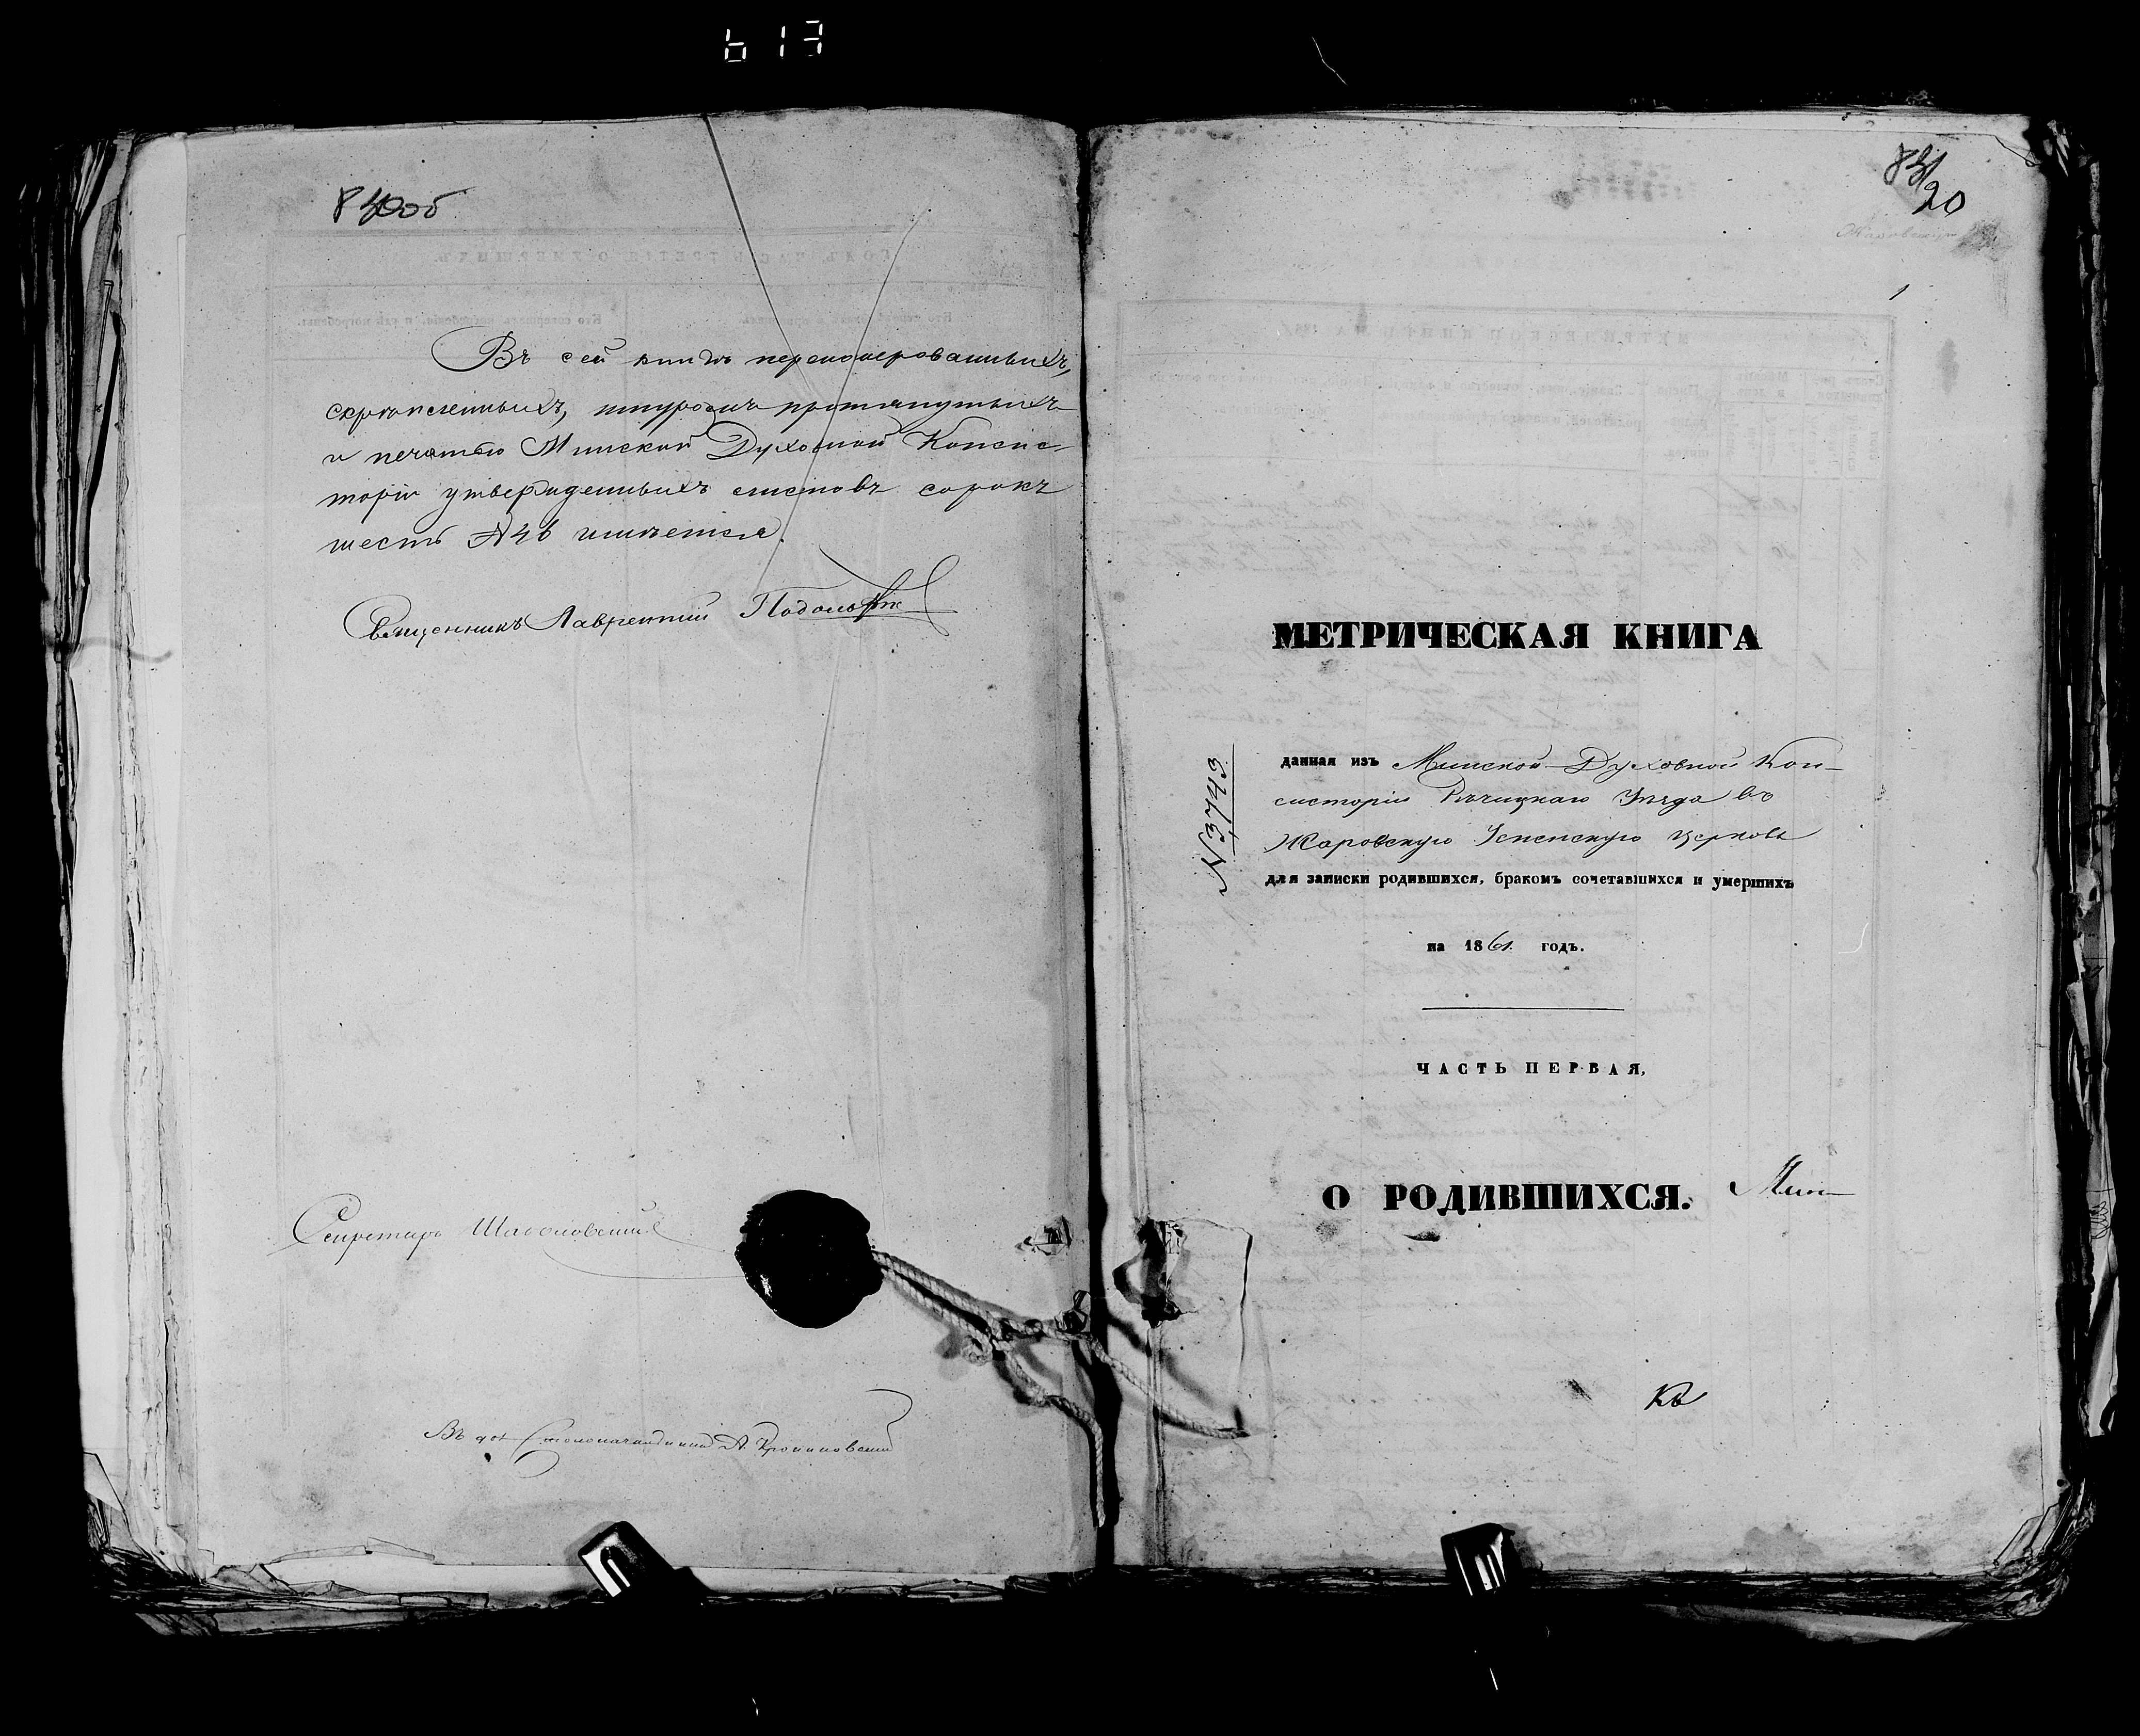 613
Въ сей книгѣ перенумерованныхъ,
скрѣпленныхъ, шнуромъ протянутыхъ
и печатью Минской Духовной Консис-
торіи утвержденныхъ листовъ сорокъ
шесть №46 имѣется.
Священникъ Лаврентій
Секретарь
Въ Столоначальника А.
20
1
МЕТРИЧЕСКАЯ КНИГА
№3743
данная изъ Минской Духовной Кон-
систоріи Рѣчицкаго Уѣзда въ
Жаровскую Успенскую церковь
для записки родившихся, бракомъ сочетавшихся и умершихъ
на 1861 годъ.
ЧАСТЬ ПЕРВАЯ,
О РОДИВШИХСЯ. Мин-